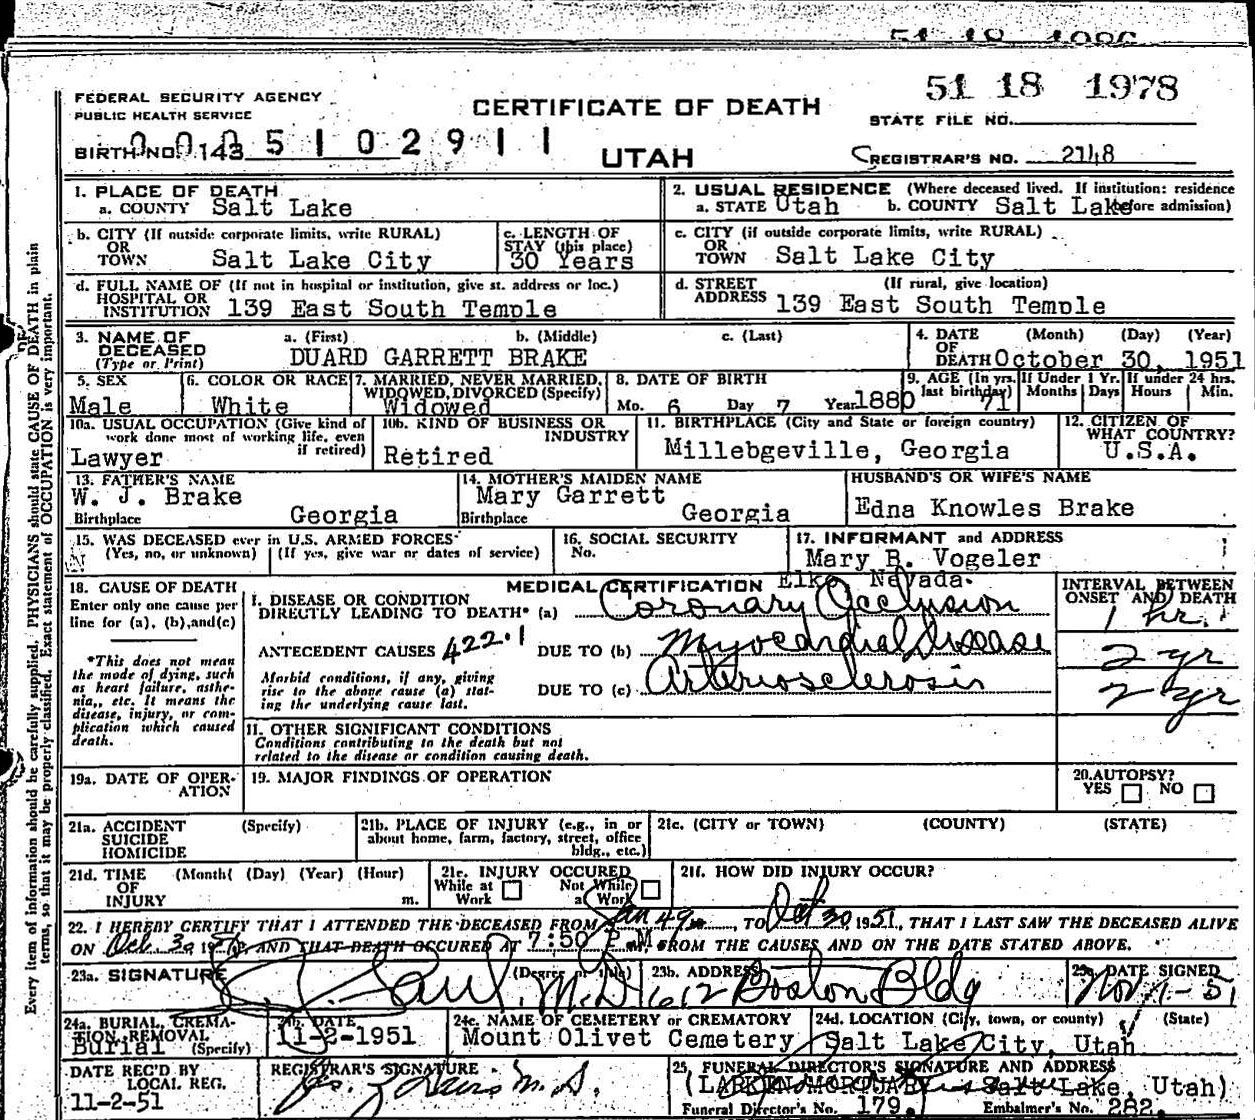 51 18 1978
FEDERAL SECURITY AGENCY
PUBLIC HEALTH SERVICE
CERTIFICATE OF DEATH
STATE FILE NO.
BIRTH NO. 143 5102911
UTAH
REGISTRAR'S NO. 2148
1. PLACE OF DEATH
a. COUNTY Salt Lake
2. USUAL RESIDENCE (Where deceased lived. If institution: residence before admission)
a. STATE Utah b. COUNTY Salt Lake
b. CITY (If outside corporate limits, write RURAL)
OR
TOWN Salt Lake City
c. LENGTH OF
STAY (this place)
30 Years
c. CITY (if outside corporate limits, write RURAL)
OR
TOWN Salt Lake City
d. FULL NAME OF (If not in hospital or institution, give st. address or loc.)
HOSPITAL OR
INSTITUTION 139 East South Temple
d. STREET (If rural, give location)
ADDRESS 139 East South Temple
3. NAME OF a. (First) b. (Middle) c. (Last)
DECEASED
(Type or Print) DUARD GARRETT BRAKE
4. DATE (Month) (Day) (Year)
OF
DEATH October 30, 1951
5. SEX
Male
6. COLOR OR RACE
White
7. MARRIED, NEVER MARRIED,
WIDOWED, DIVORCED (Specify)
Widowed
8. DATE OF BIRTH
Mo. 6 Day 7 Year 1880
9. AGE (In yrs. last birthday) 71
If Under 1 Yr. Months Days
If under 24 hrs. Hours Min.
10a. USUAL OCCUPATION (Give kind of
work done most of working life, even
if retired)
Lawyer
10b. KIND OF BUSINESS OR
INDUSTRY
Retired
11. BIRTHPLACE (City and State or foreign country)
Millebgeville, Georgia
12. CITIZEN OF
WHAT COUNTRY?
U.S.A.
13. FATHER'S NAME
W. J. Brake
Birthplace Georgia
14. MOTHER'S MAIDEN NAME
Mary Garrett
Birthplace Georgia
HUSBAND'S OR WIFE'S NAME
Edna Knowles Brake
15. WAS DECEASED ever in U.S. ARMED FORCES
(Yes, no, or unknown) (If yes, give war or dates of service)
16. SOCIAL SECURITY
No.
17. INFORMANT and ADDRESS
Mary B. Vogeler
Elko Nevada
18. CAUSE OF DEATH
Enter only one cause per
line for (a), (b), and (c)
*This does not mean
the mode of dying, such
as heart failure, asthe-
nia,, etc. It means the
disease, injury, or com-
plication which caused
death.
MEDICAL CERTIFICATION
I. DISEASE OR CONDITION
DIRECTLY LEADING TO DEATH* (a) Coronary Occlusion
ANTECEDENT CAUSES 422.1 DUE TO (b) Myocardial Disease
Morbid conditions, if any, giving
rise to the above cause (a) stat-
ing the underlying cause last.
DUE TO (c) Arteriosclerosis
INTERVAL BETWEEN
ONSET AND DEATH
1 hr.
2 yr
2 yr
11. OTHER SIGNIFICANT CONDITIONS
Conditions contributing to the death but not
related to the disease or condition causing death.
19a. DATE OF OPER-
ATION
19. MAJOR FINDINGS OF OPERATION
20. AUTOPSY?
YES NO
21a. ACCIDENT (Specify)
SUICIDE
HOMICIDE
21b. PLACE OF INJURY (e.g., in or
about home, farm, factory, street, office
bldg., etc.)
21c. (CITY or TOWN) (COUNTY) (STATE)
21d. TIME (Month( (Day) (Year) (Hour)
OF
INJURY m.
21e. INJURY OCCURED
While at Work Not While at Work
21f. HOW DID INJURY OCCUR?
22. I HEREBY CERTIFY THAT I ATTENDED THE DECEASED FROM Jan 49, TO Oct 30 1951, THAT I LAST SAW THE DECEASED ALIVE
ON Oct. 30 19 AND THAT DEATH OCCURED AT 7:50 P.M. FROM THE CAUSES AND ON THE DATE STATED ABOVE.
23a. SIGNATURE (Degree or title) M.D.
23b. ADDRESS 612 Boston Bldg
23c. DATE SIGNED Nov 1-51
24a. BURIAL, CREMA-
TION, REMOVAL
Burial (Specify)
24b. DATE
11-2-1951
24c. NAME OF CEMETERY or CREMATORY
Mount Olivet Cemetery
24d. LOCATION (City, town, or county) (State)
Salt Lake City, Utah
DATE REC'D BY
LOCAL REG.
11-2-51
REGISTRAR'S SIGNATURE
25. FUNERAL DIRECTOR'S SIGNATURE AND ADDRESS
(LARKIN MORTUARY Salt Lake, Utah)
Funeral Director's No. 179. Embalmer's No. 282
Every item of information should be carefully supplied. PHYSICIANS should state CAUSE OF DEATH in plain
terms, so that it may be properly classified. Exact statement of OCCUPATION is very important.